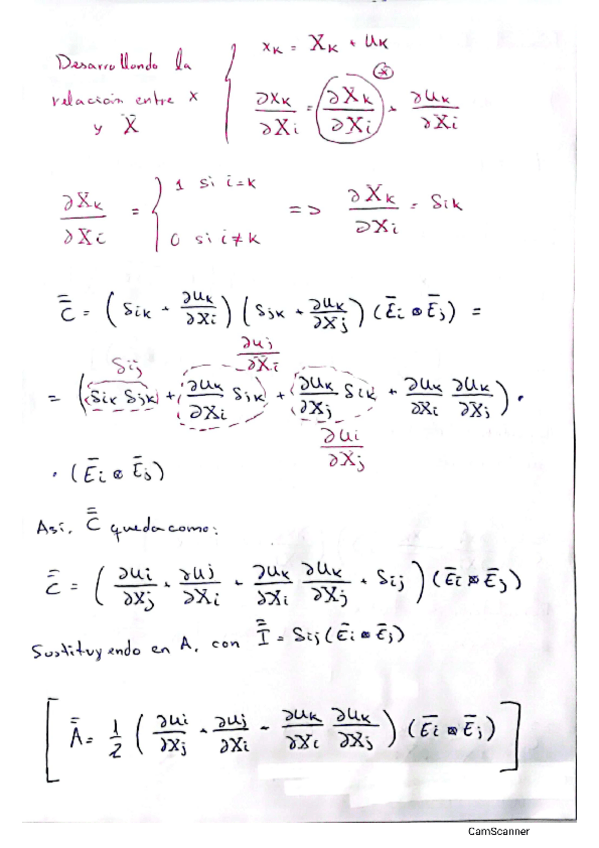 Desarrollando la
relación entre x
y X̄
xₖ = Xₖ + uₖ
∂xₖ/∂Xᵢ = ∂Xₖ/∂Xᵢ + ∂uₖ/∂Xᵢ
(*)
∂Xₖ/∂Xᵢ = { 1 si i=k
0 si i≠k
=> ∂Xₖ/∂Xᵢ = δik
C̿ = (δik + ∂uₖ/∂Xᵢ) (δjk + ∂uₖ/∂Xⱼ) (Ēi ⊗ Ēj) =
δij
∂uⱼ/∂Xᵢ
= (δik δjk + ∂uₖ/∂Xᵢ δjk + ∂uₖ/∂Xⱼ δik + ∂uₖ/∂Xᵢ ∂uₖ/∂Xⱼ) ·
∂uᵢ/∂Xⱼ
· (Ēi ⊗ Ēj)
Así, C̿ queda como:
C̿ = (∂uᵢ/∂Xⱼ + ∂uⱼ/∂Xᵢ + ∂uₖ/∂Xᵢ ∂uₖ/∂Xⱼ + δij) (Ēi ⊗ Ēj)
Sustituyendo en A, con I̿ = δij (Ēi ⊗ Ēj)
[A̿ = 1/2 (∂uᵢ/∂Xⱼ + ∂uⱼ/∂Xᵢ + ∂uₖ/∂Xᵢ ∂uₖ/∂Xⱼ) (Ēi ⊗ Ēj)]
CamScanner